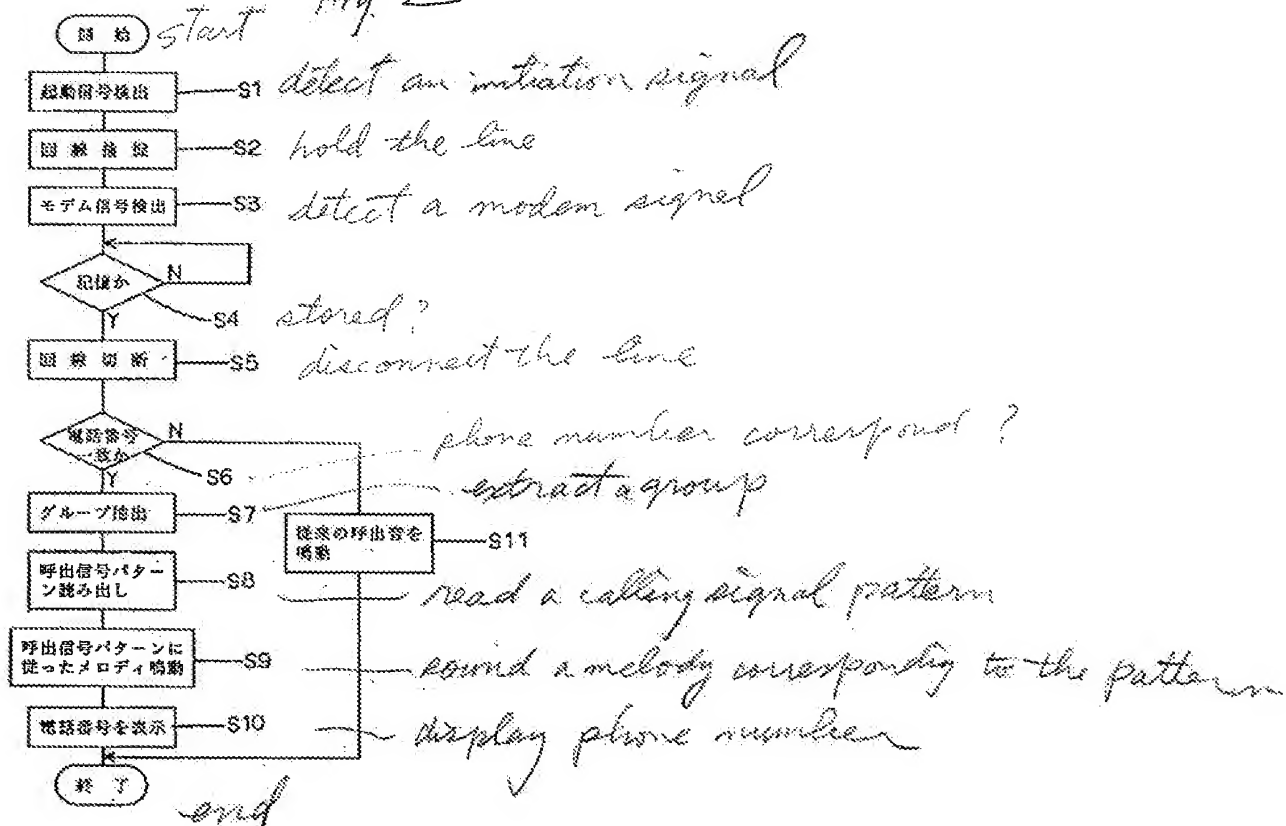 Fig. 2
開始 start
起動信号検出 S1 detect an initiation signal
回線接続 S2 hold the line
モデム信号検出 S3 detect a modem signal
記憶か N
Y S4 stored?
回線切断 S5 disconnect the line
電話番号 N phone number correspond?
一致か
Y S6
グループ抽出 S7 extract a group
従来の呼出音を
鳴動 S11
呼出信号パター
ン読み出し S8 read a calling signal pattern
呼出信号パターンに
従ったメロディ鳴動 S9 sound a melody correspondig to the pattern
電話番号を表示 S10 display phone number
終了 end